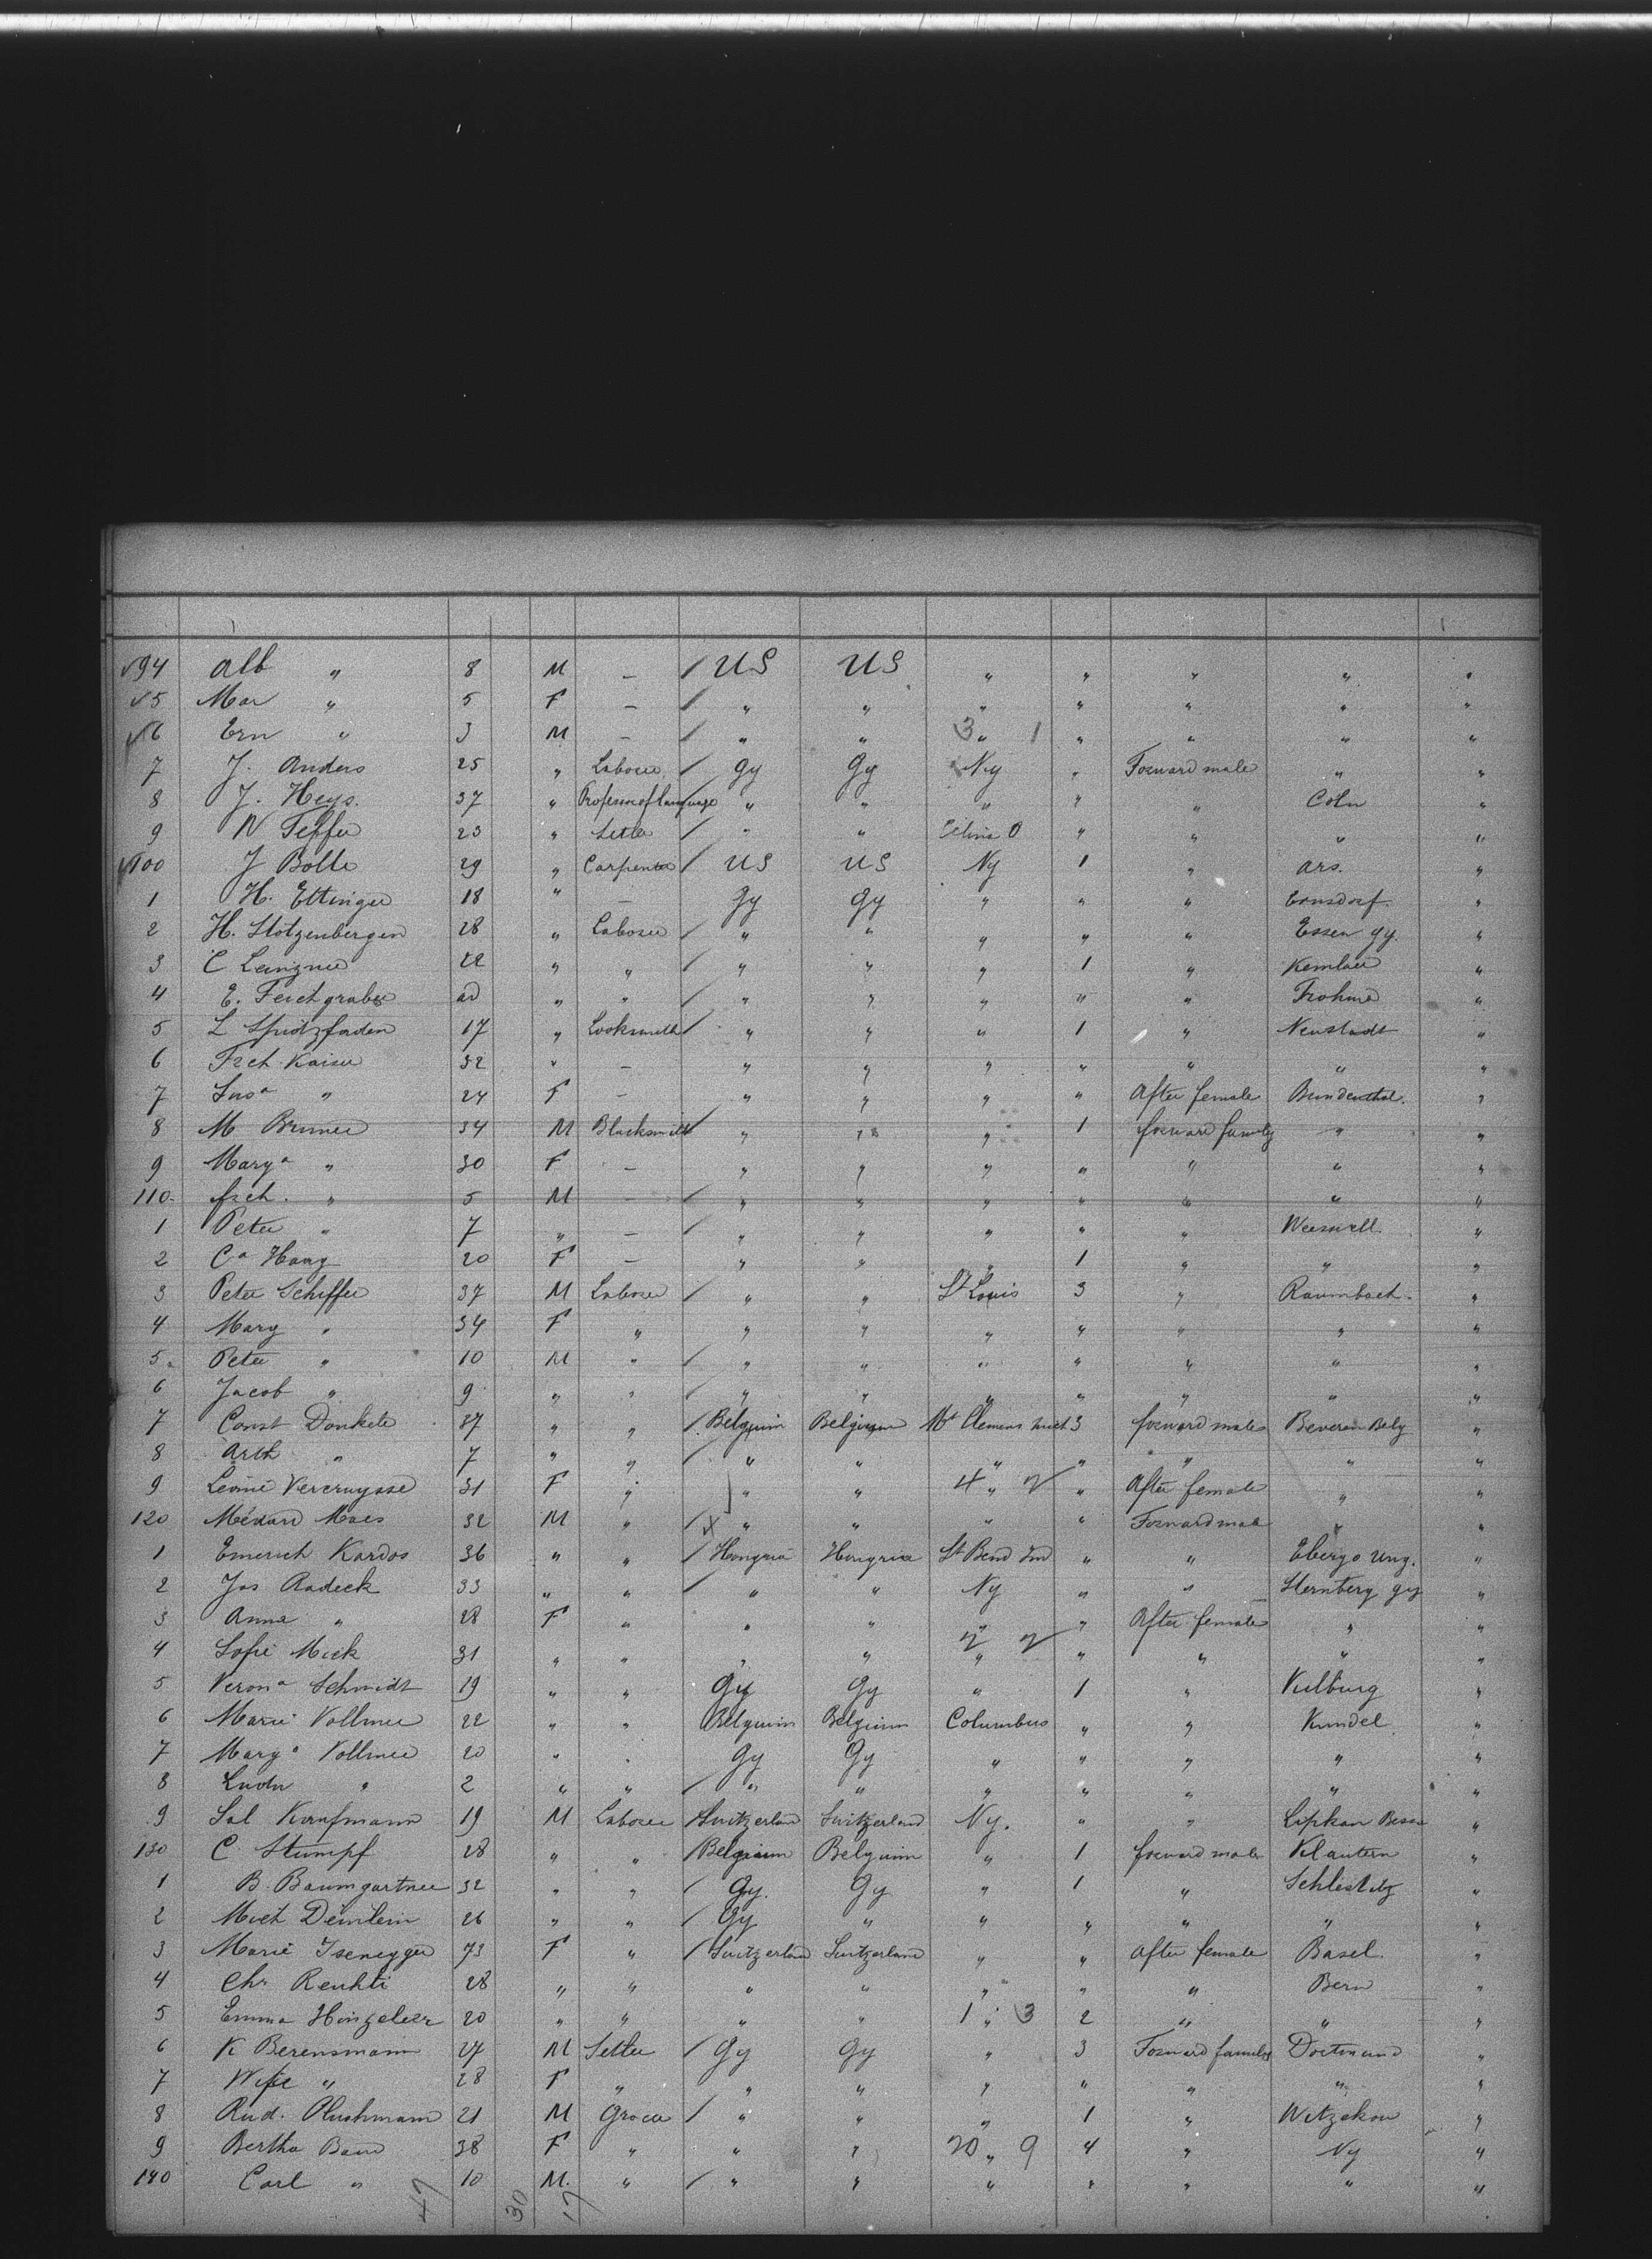 94 Alb " 8 M — / US US " " " " "
5 Mar " 5 F — / " " " " " " "
6 Ern " 3 M — / " " 3 " 1 " " " "
7 J. Anders 25 " Laborer / Gy Gy Ny " Forward male " "
8 J. Heys. 37 " Professor of language " " " " " Coln "
9 N Feffer 23 " Settler / " " O " " " "
100 J Bolle 29 " Carpenter / US US Ny 1 " Ars. "
1 H. Ettinger 18 " — Gy Gy " " " Ernsdorf. "
2 H. Stotzenbergen 28 " Laborer / " " " " " Essen Gy. "
3 C 22 " " / " " " 1 " "
4 E. Feichtgraber " " / " " " " " Frohme "
5 L Spitzfaden 17 " Locksmith / " " " 1 " Neustadt "
6 Frch Kaiser 32 " — " " " " " " "
7 Susa " 24 F — " " " " After female Bundenthal. "
8 M Brunner 34 M Blacksmith / " " " 1 forward family " "
9 Marga " 30 F — " " " " " " "
110 frch. " 5 M — / " " " " " " "
1 Peter " 7 " — / " " " " " "
2 Ca Haag 20 F — " " " 1 " " "
3 Peter Schiffer 37 M Laborer / " " St Louis 3 " Raumbach. "
4 Mary " 34 F " " " " " " " "
5 Peter " 10 M " / " " " " " " "
6 Jacob " 9 " " / " " " " " " "
7 Const Donkele 37 " " / Belgium Belgium Mt Clemens Mich 3 forward male Beveren Belg "
8 Arth " 7 " " / " " " " " " "
9 Leonie Vercruysse 31 F " " " 4 " 2 " After female " "
120 Médard Maes 32 M " / x " " " " Forward male " "
1 Emerich Kardos 36 " " / Hongria Hongria St Bend Ind " " Ebergo Ung. "
2 Jos Radeck 33 " " / " " Ny " " Sternberg Gy "
3 Anna " 28 F " " " " " After female " "
4 Sofie Mick 31 " " " " 2 " 2 " " " "
5 Verona Schmidt 19 " " Gy Gy " 1 " Kilburg "
6 Marie Vollmer 22 " " Belguim Belguim Columbus " " Kundel "
7 Marga Vollmer 20 " " Gy Gy " " " " "
8 Ludw " 2 " " / " " " " " " "
9 Sal Kaufmann 19 M Laborer / Switzerland Switzerland Ny. " " Lipkan Bessa "
130 C. Stumpf 28 " " / Belgium Belguim " 1 forward male Klautern "
1 B. Baumgartner 32 " " / Gy. Gy " 1 " "
2 Mich Demlein 26 " " / Gy " " " " " "
3 Marie Isenegger 73 F " / Switzerland Switzerland " " After female Basel "
4 Chr Renkti 28 " " " " " " " Bern "
5 Emma 20 " " " " 1 " 3 2 " " "
6 K Berensmann 27 M Settler / Gy Gy " 3 Forward family Dortmund "
7 Wife " 28 F " " " " " " " "
8 Rud. Plushmann 21 M Grocer / " " " 1 " Witzekow "
9 Bertha Baur 38 F " " " 20 " 9 4 " Ny "
140 Carl " 10 M. " / " " " " " " "
47 30 17